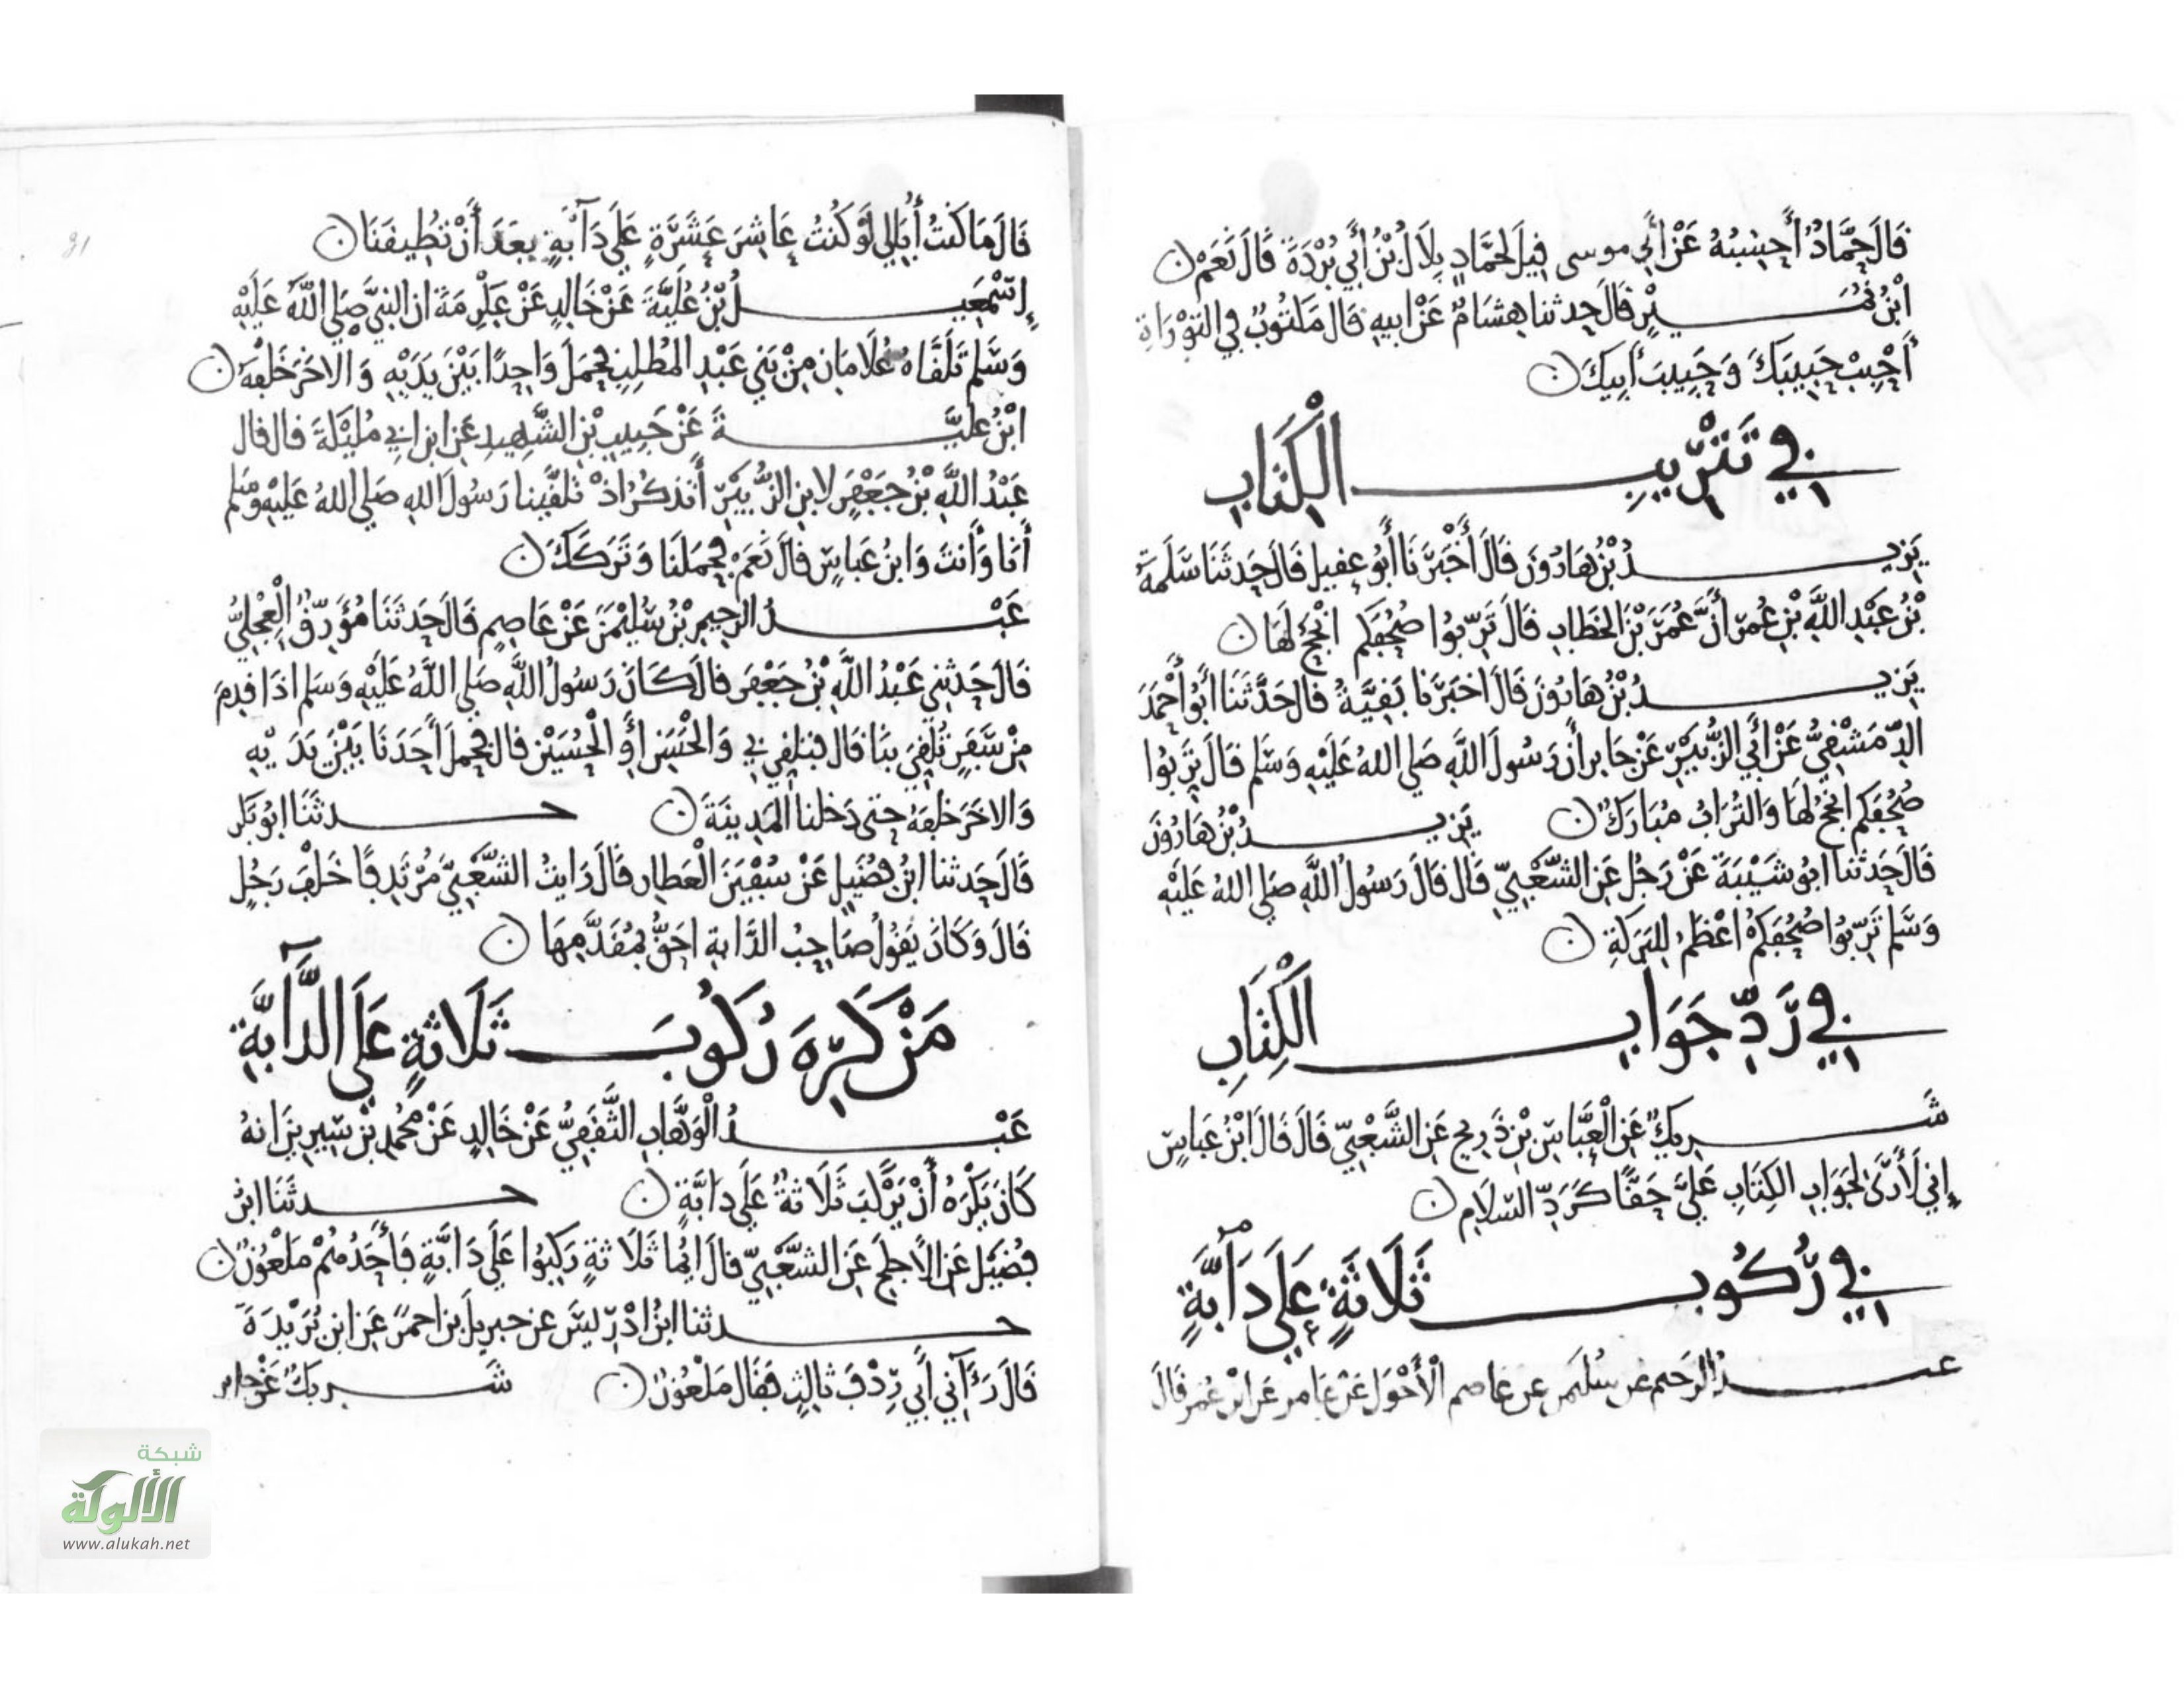 قَالَ حَمَّادٌ أَحْسِبُهُ عَنْ أَبِي موسى قِيلَ لِحَمَّادٍ بِلَالُ بْنُ أَبِي بُرْدَةَ قَالَ نَعَمْ
ابْنُ نُمَيْرٍ قَالَ حدثنا هِشَامٌ عَنْ ابيهِ قَالَ مَكْتُوبٌ فِي التَّوْرَاةِ
أَحْبِبْ حَبِيبَكَ وَحَبِيبَ أَبِيكَ
في تَتْرِيبِ الْكِتَابِ
يَزِيدُ بْنُ هَارُونَ قَالَ أَخْبَرَنَا أَبُو عقيل قَالَ حَدثَنَا سَلَمَةُ
بْنُ عَبْدِ اللَّهِ بْنِ عُمَرَ أَنَّ عُمَرَ بْنَ الخَطَّابِ قَالَ تَرِّبُوا صُحُفَكُم انْجَحُ لَهَا
يَزِيدُ بْنُ هَارُونَ قَالَ اخبَرَنا بَقِيَّةُ قَالَ حَدَّثَنَا أَبُو أَحْمَدَ
الدِّمَشْقِيُّ عَنْ أَبِي الزُّبَيْرِ عَنْ جَابِرٍ أَن رَسُولَ اللَّهِ صَلى اللهُ عَلَيْهِ وَسَلم قَالَ تَرِّبُوا
صُحُفَكم انجَحُ لهَا وَالتُّرَابُ مُبَارَكٌ يَزِيدُ بْنُ هَارُونَ
قَالَ حَدثَنا ابُو شَيْبَةَ عَنْ رَجُلٍ عَنِ الشَّعْبِيِّ قَالَ قَالَ رَسُولُ اللَّهِ صَلى اللهُ عَلَيْهِ
وَسَلم تَرِّبُوا صُحُفَكمْ اعْظَمُ لِلبَرَكَةِ
في رَدِّ جَوَابِ الْكِتَابِ
شَرِيكٌ عَنِ الْعَبَّاسِ بْنِ ذَرِيح عَنِ الشَّعْبِيِّ قَالَ قَالَ ابْنُ عَبَّاسٍ
إِنِّي لَأَرَى لِجَوَابِ الكِتَابِ عَلَيَّ حَقًّا كَرَدِّ السَّلَامِ
في رُكُوبِ ثَلَاثَةٍ عَلَى دَابَّةٍ
عبدُ الرَحيم عن سُليمن عن عاصم الْأَحْوَلِ عَنْ عَامر عَن ابْن عُمَر قَالَ
قَالَ مَا كُنتُ أُبَالِي لَوْ كُنْتُ عَاشِرَ عَشَرَةٍ عَلَى دَابَّةٍ بعْدَ أَنْ تُطِيقَنَا
إِسْمعِيلُ بْنُ عُلَيَّةَ عَنْ خَالِدٍ عَنْ عِكْرِمَةَ ان النبيَّ صَلى اللَّهُ عَلَيْهِ
وَسَّلم تَلَقَّاهُ غُلَامَان مِنْ بَنِي عَبْدِ المُطلِبِ فَحَمَلَ وَاحِدًا بَيْنَ يَدَيْهِ وَالاخَرَ خَلْفَهُ
ابْنُ عُلَيَّةَ عَنْ حَبِيبِ بْنِ الشَّهِيدِ عَنِ ابن ابي مُلَيْكَةَ قال قال
عَبْدُ اللَّهِ بْنُ جَعْفَرٍ لابنِ الزُّبَيْرِ أَتَذكُرُ اذْ تَلقَّينا رَسُولَ اللهِ صَلى اللهُ عَلَيْهِ وَسَلم
أَنَا وَأَنتَ وَابنُ عَبَّاسٍ قَالَ نَعَمْ فَحَمَلَنَا وَتَرَكَكَ
عَبْدُ الرَّحِيمِ بْنُ سُلَيْمنَ عَنْ عَاصِمٍ قَالَ حَدثَنَا مُؤَرِّقٌ الْعِجْلِيُّ
قَالَ حَدثَنِي عَبْدُ اللَّهِ بْنُ جَعْفَرٍ قَالَ كَانَ رَسُولُ اللَّهِ صَلى اللَّهُ عَلَيْهِ وَسَلم اذَا قدِمَ
مِنْ سَفَرٍ تُلُقِّيَ بنَا قَال فتُلُقِّيَ بي وَالحَسَنِ أَوِ الْحُسَيْن قال فَحمَلَ أَحَدَنَا بَيْنَ يَدَيْهِ
وَالاخَرَ خَلفَهُ حَتى دَخَلنا المَدِينَةَ حدثَنَا ابُو بَكر
قَالَ حَدثنا ابْنُ فُضَيْلٍ عَنْ سُفْيَنَ الْعَطارِ قَالَ رَايتُ الشَّعْبِيَّ مُرْتَدِفًا خَلْفَ رَجُلٍ
قَالَ وَكَانَ يَقُولُ صَاحِبُ الدَّابةِ احَقُّ بمُقَدَّمِهَا
مَنْ كَرِهَ رُكُوبَ ثَلَاثةٍ عَلَى الدَّابَّةِ
عَبْدُ الْوَهَّابِ الثَّقَفِيُّ عَنْ خَالِدٍ عَنْ مُحمدِ بْنِ سِيرِينَ انهُ
كَانَ يَكْرَهُ أَنْ يَرْكَبَ ثَلَاثةٌ عَلَى دَابَّةٍ حدثَنَا ابْنُ
فُضَيْل عَن الاجلَح عَنِ الشَّعْبِيِّ قالَ ايُّمَا ثَلَاثةٍ رَكِبُوا عَلَى دَابَّةٍ فَأَحَدُهُمْ مَلعُونٌ
حدثنا ابنُ ادْرِيسَ عن حبريل بن احمرَ عَن ابن بُرَيْدَةَ
قَالَ رَءَآنِي أَبِي رِدْفَ ثَالِثٍ فَقَال مَلْعُونٌ شَرِيكٌ عَنْ جابر
شبكة
الألوكة
www.alukah.net